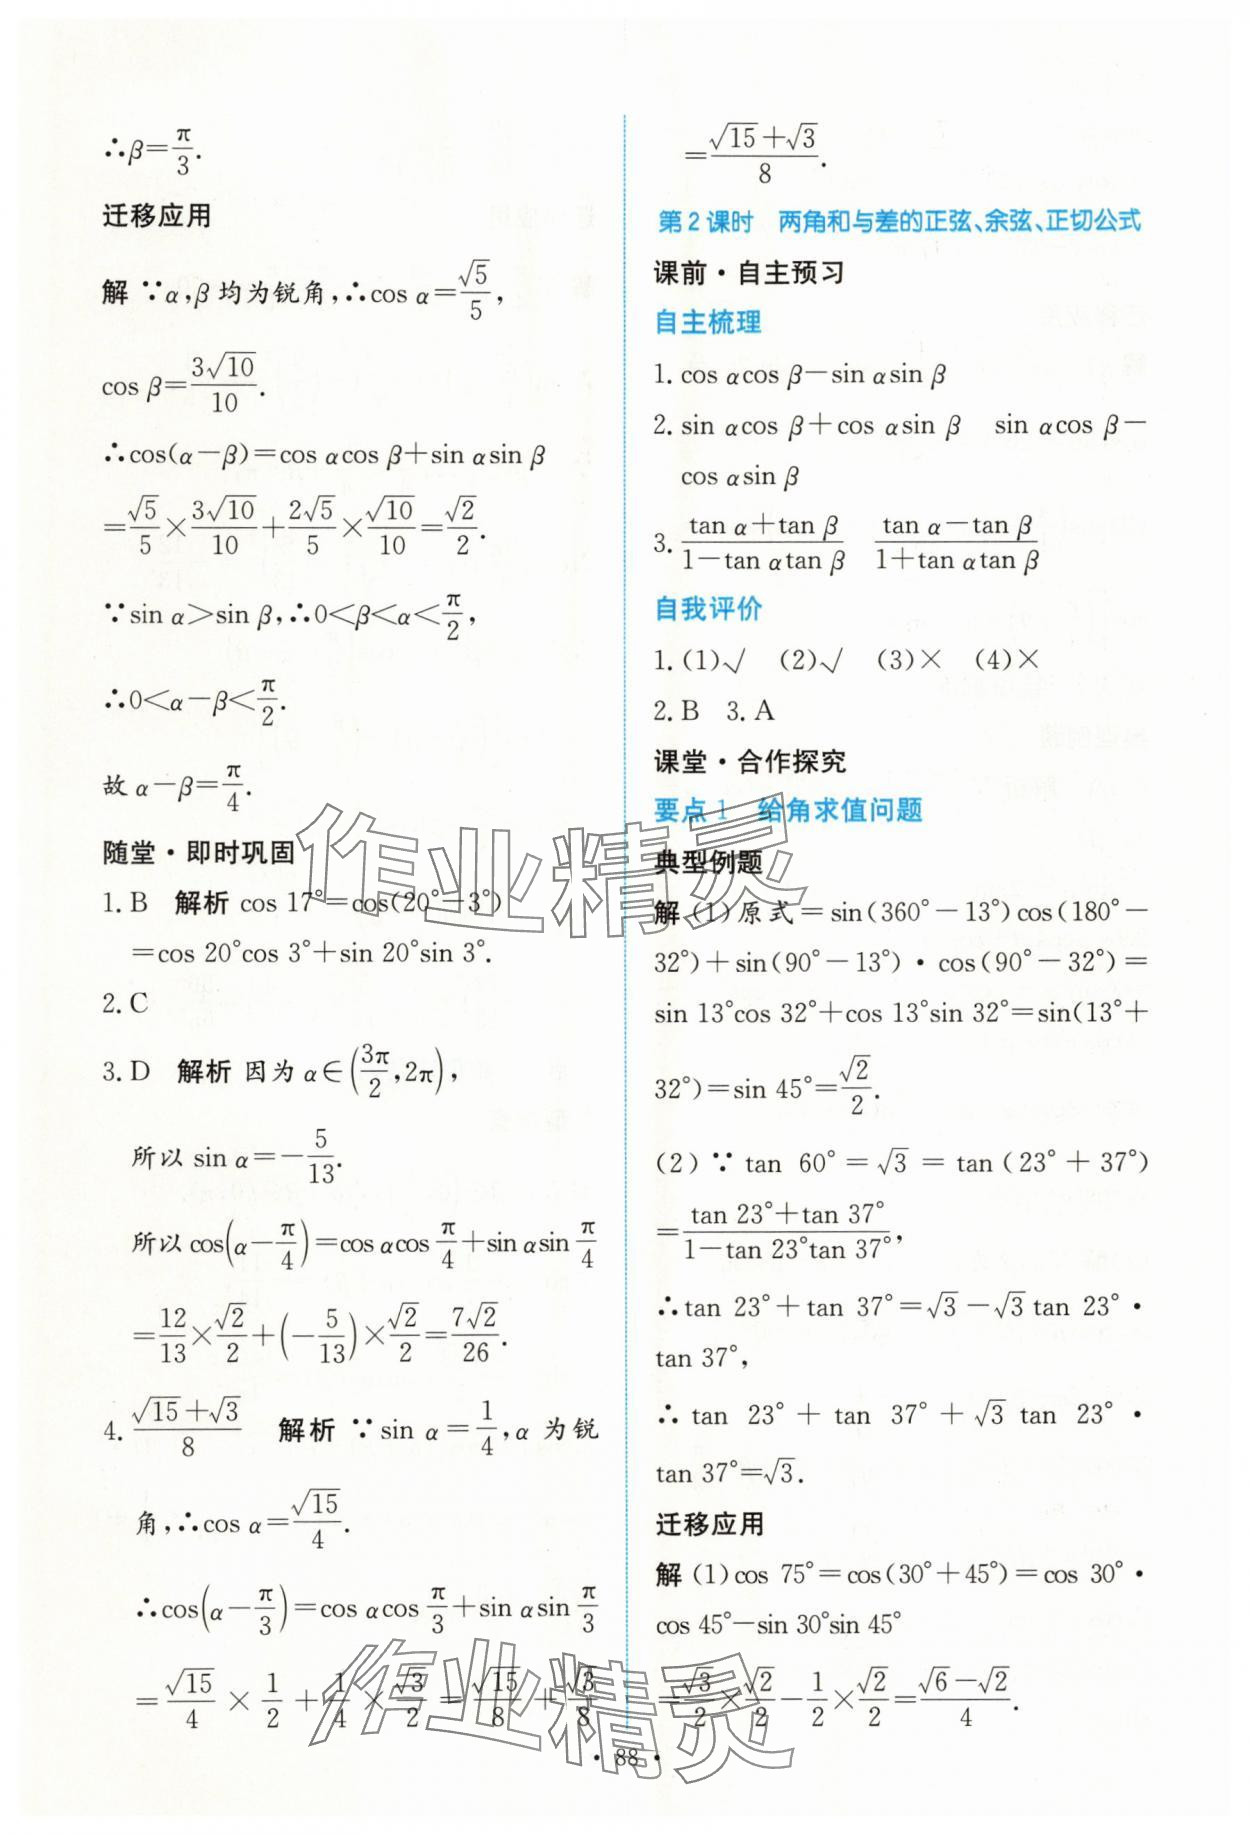 ∴β=π/3.
迁移应用
解 ∵α,β均为锐角,∴cos α=√5/5,
cos β=3√10/10.
∴cos(α−β)=cos αcos β+sin αsin β
=√5/5×3√10/10+2√5/5×√10/10=√2/2.
∵sin α>sin β,∴0<β<α<π/2,
∴0<α−β<π/2.
故α−β=π/4.
随堂·即时巩固
1.B 解析 cos 17°=cos(20°−3°)
=cos 20°cos 3°+sin 20°sin 3°.
2.C
3.D 解析 因为α∈(3π/2,2π),
所以 sin α=−5/13.
所以 cos(α−π/4)=cos αcos π/4+sin αsin π/4
=12/13×√2/2+(−5/13)×√2/2=7√2/26.
4.(√15+√3)/8 解析 ∵sin α=1/4,α为锐
角,∴cos α=√15/4.
∴cos(α−π/3)=cos αcos π/3+sin αsin π/3
=√15/4×1/2+1/4×√3/2=√15/8+√3/8
=(√15+√3)/8.
第2课时 两角和与差的正弦、余弦、正切公式
课前·自主预习
自主梳理
1.cos αcos β−sin αsin β
2.sin αcos β+cos αsin β sin αcos β−
cos αsin β
3.(tan α+tan β)/(1−tan αtan β) (tan α−tan β)/(1+tan αtan β)
自我评价
1.(1)√ (2)√ (3)× (4)×
2.B 3.A
课堂·合作探究
要点1 给角求值问题
典型例题
解 (1)原式=sin(360°−13°)cos(180°−
32°)+sin(90°−13°)·cos(90°−32°)=
sin 13°cos 32°+cos 13°sin 32°=sin(13°+
32°)=sin 45°=√2/2.
(2)∵tan 60°=√3=tan(23°+37°)
=(tan 23°+tan 37°)/(1−tan 23°tan 37°),
∴tan 23°+tan 37°=√3−√3tan 23°·
tan 37°,
∴tan 23°+tan 37°+√3tan 23°·
tan 37°=√3.
迁移应用
解 (1)cos 75°=cos(30°+45°)=cos 30°·
cos 45°−sin 30°sin 45°
=√3/2×√2/2−1/2×√2/2=(√6−√2)/4.
·88·
作业精灵
作业精灵